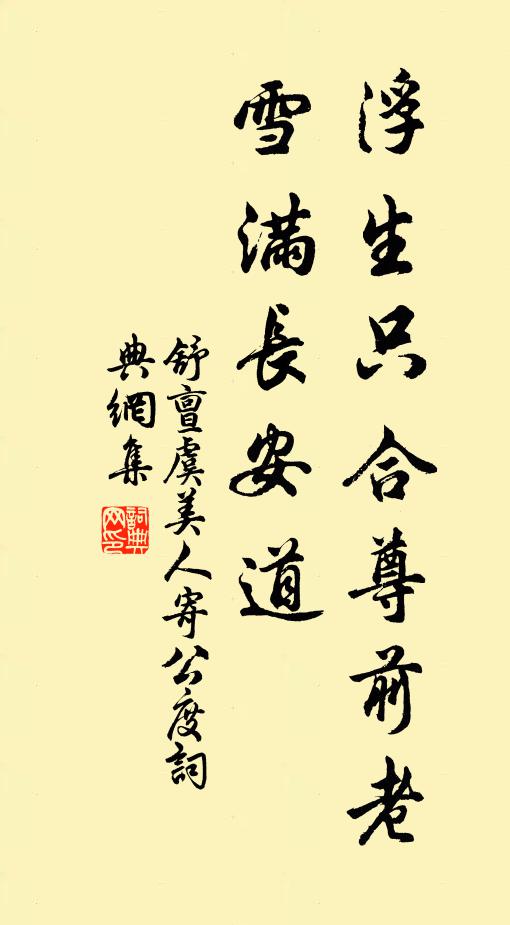 浮生只合尊前老
雪滿長安道
舒亶虞美人寄公度詞
典網集
詞典
網印